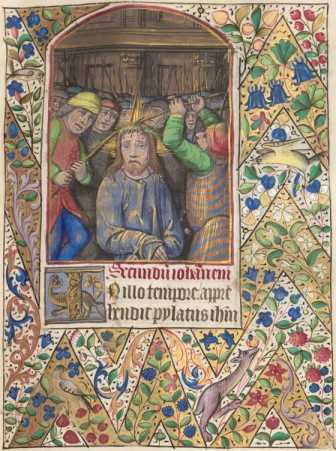 Secundū iohanem
IN illo tempore appre
hendit pylatus ihm